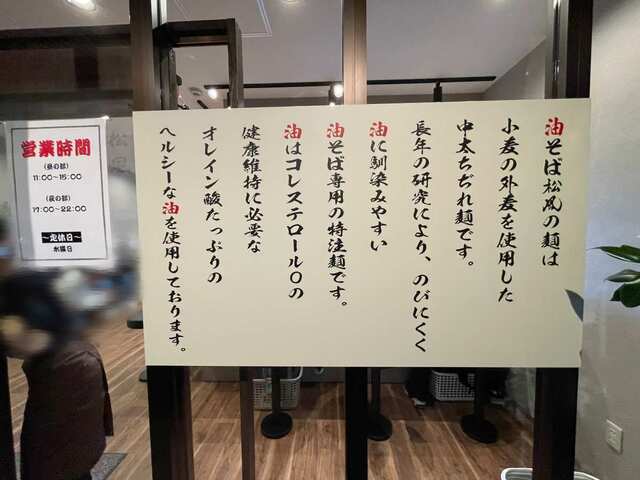 油そば松風の麺は
小麦の外麦を使用した
中太ちぢれ麺です。
長年の研究により、のびにくく
油に馴染みやすい
油そば専用の特注麺です。
油はコレステロール0の
健康維持に必要な
オレイン酸たっぷりの
ヘルシーな油を使用しております。
営業時間
(昼の部)
11:00~15:00
(夜の部)
17:00~22:00
~定休日~
水曜日